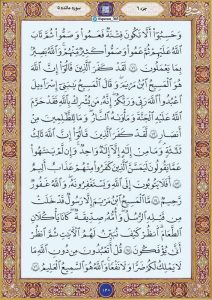 جزء ٦
سوره مائده ٥
وَحَسِبُوٓا۟ أَلَّا تَكُونَ فِتْنَةٌ فَعَمُوا۟ وَصَمُّوا۟ ثُمَّ تَابَ
ٱللَّهُ عَلَيْهِمْ ثُمَّ عَمُوا۟ وَصَمُّوا۟ كَثِيرٌ مِّنْهُمْ وَٱللَّهُ بَصِيرٌۢ
بِمَا يَعْمَلُونَ ٧١ لَقَدْ كَفَرَ ٱلَّذِينَ قَالُوٓا۟ إِنَّ ٱللَّهَ
هُوَ ٱلْمَسِيحُ ٱبْنُ مَرْيَمَ وَقَالَ ٱلْمَسِيحُ يَٰبَنِىٓ إِسْرَٰٓءِيلَ
ٱعْبُدُوا۟ ٱللَّهَ رَبِّى وَرَبَّكُمْ إِنَّهُۥ مَن يُشْرِكْ بِٱللَّهِ فَقَدْ حَرَّمَ
ٱللَّهُ عَلَيْهِ ٱلْجَنَّةَ وَمَأْوَىٰهُ ٱلنَّارُ وَمَا لِلظَّٰلِمِينَ مِنْ
أَنصَارٍ ٧٢ لَّقَدْ كَفَرَ ٱلَّذِينَ قَالُوٓا۟ إِنَّ ٱللَّهَ
ثَالِثُ ثَلَٰثَةٍ وَمَا مِنْ إِلَٰهٍ إِلَّآ إِلَٰهٌ وَٰحِدٌ وَإِن لَّمْ يَنتَهُوا۟
عَمَّا يَقُولُونَ لَيَمَسَّنَّ ٱلَّذِينَ كَفَرُوا۟ مِنْهُمْ عَذَابٌ أَلِيمٌ
٧٣ أَفَلَا يَتُوبُونَ إِلَى ٱللَّهِ وَيَسْتَغْفِرُونَهُۥ وَٱللَّهُ غَفُورٌ
رَّحِيمٌ ٧٤ مَّا ٱلْمَسِيحُ ٱبْنُ مَرْيَمَ إِلَّا رَسُولٌ قَدْ خَلَتْ
مِن قَبْلِهِ ٱلرُّسُلُ وَأُمُّهُۥ صِدِّيقَةٌ كَانَا يَأْكُلَانِ
ٱلطَّعَامَ ٱنظُرْ كَيْفَ نُبَيِّنُ لَهُمُ ٱلْءَايَٰتِ ثُمَّ ٱنظُرْ
أَنَّىٰ يُؤْفَكُونَ ٧٥ قُلْ أَتَعْبُدُونَ مِن دُونِ ٱللَّهِ مَا
لَا يَمْلِكُ لَكُمْ ضَرًّا وَلَا نَفْعًا وَٱللَّهُ هُوَ ٱلسَّمِيعُ ٱلْعَلِيمُ ٧٦
١٢٠